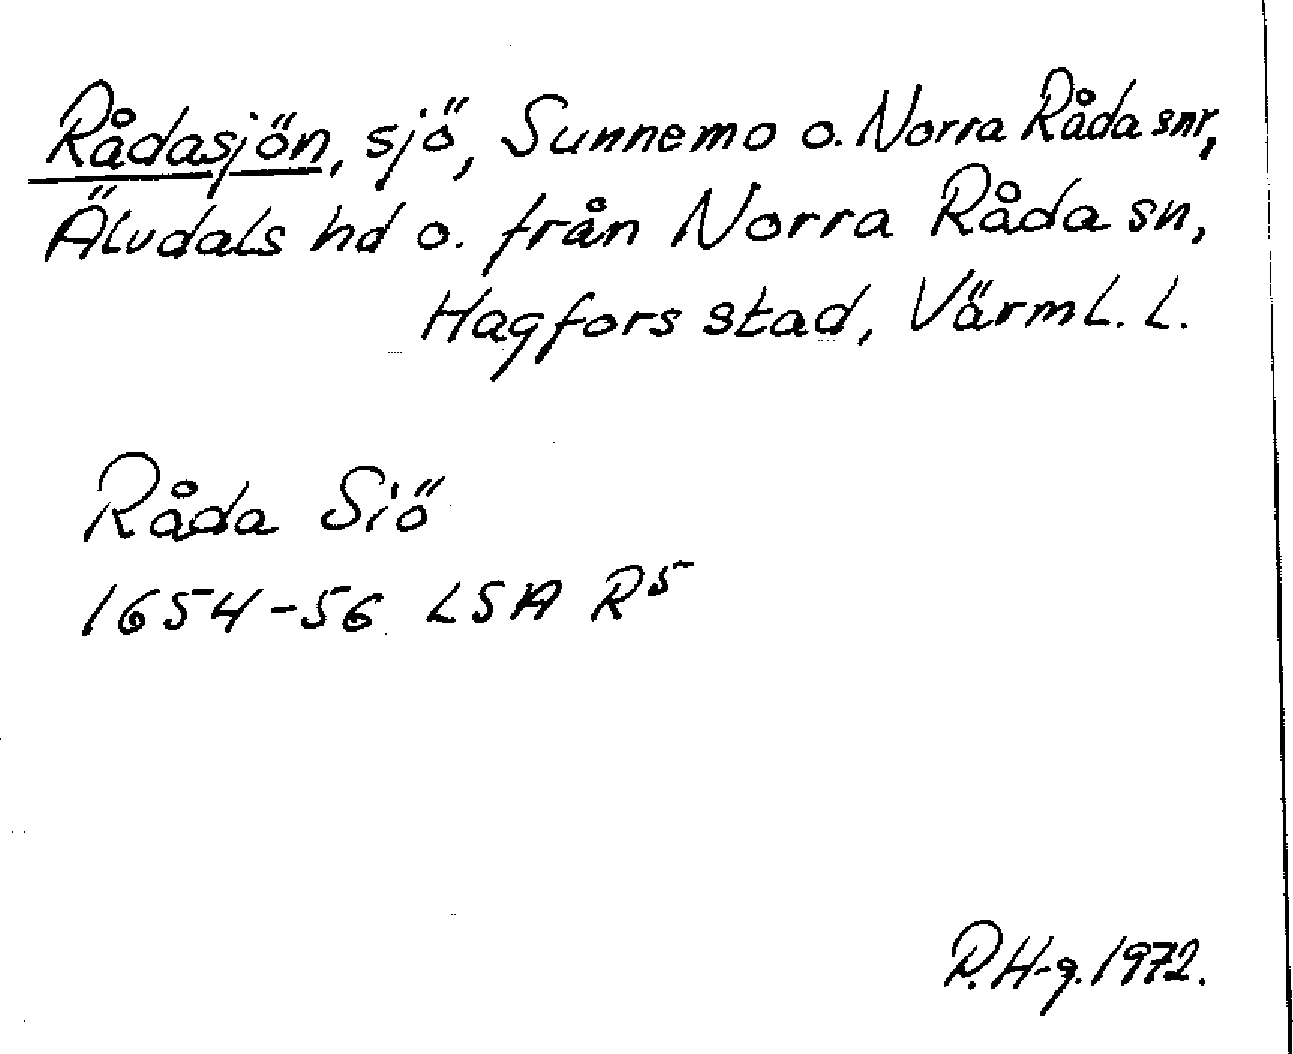 Rådasjön, sjö, Sunnemo o. Norra Råda snr,
Älvdals hd o. från Norra Råda sn,
Hagfors stad, Värml. l.
Råda Siö
1654-56 LSA R5
R.H-g. 1972.